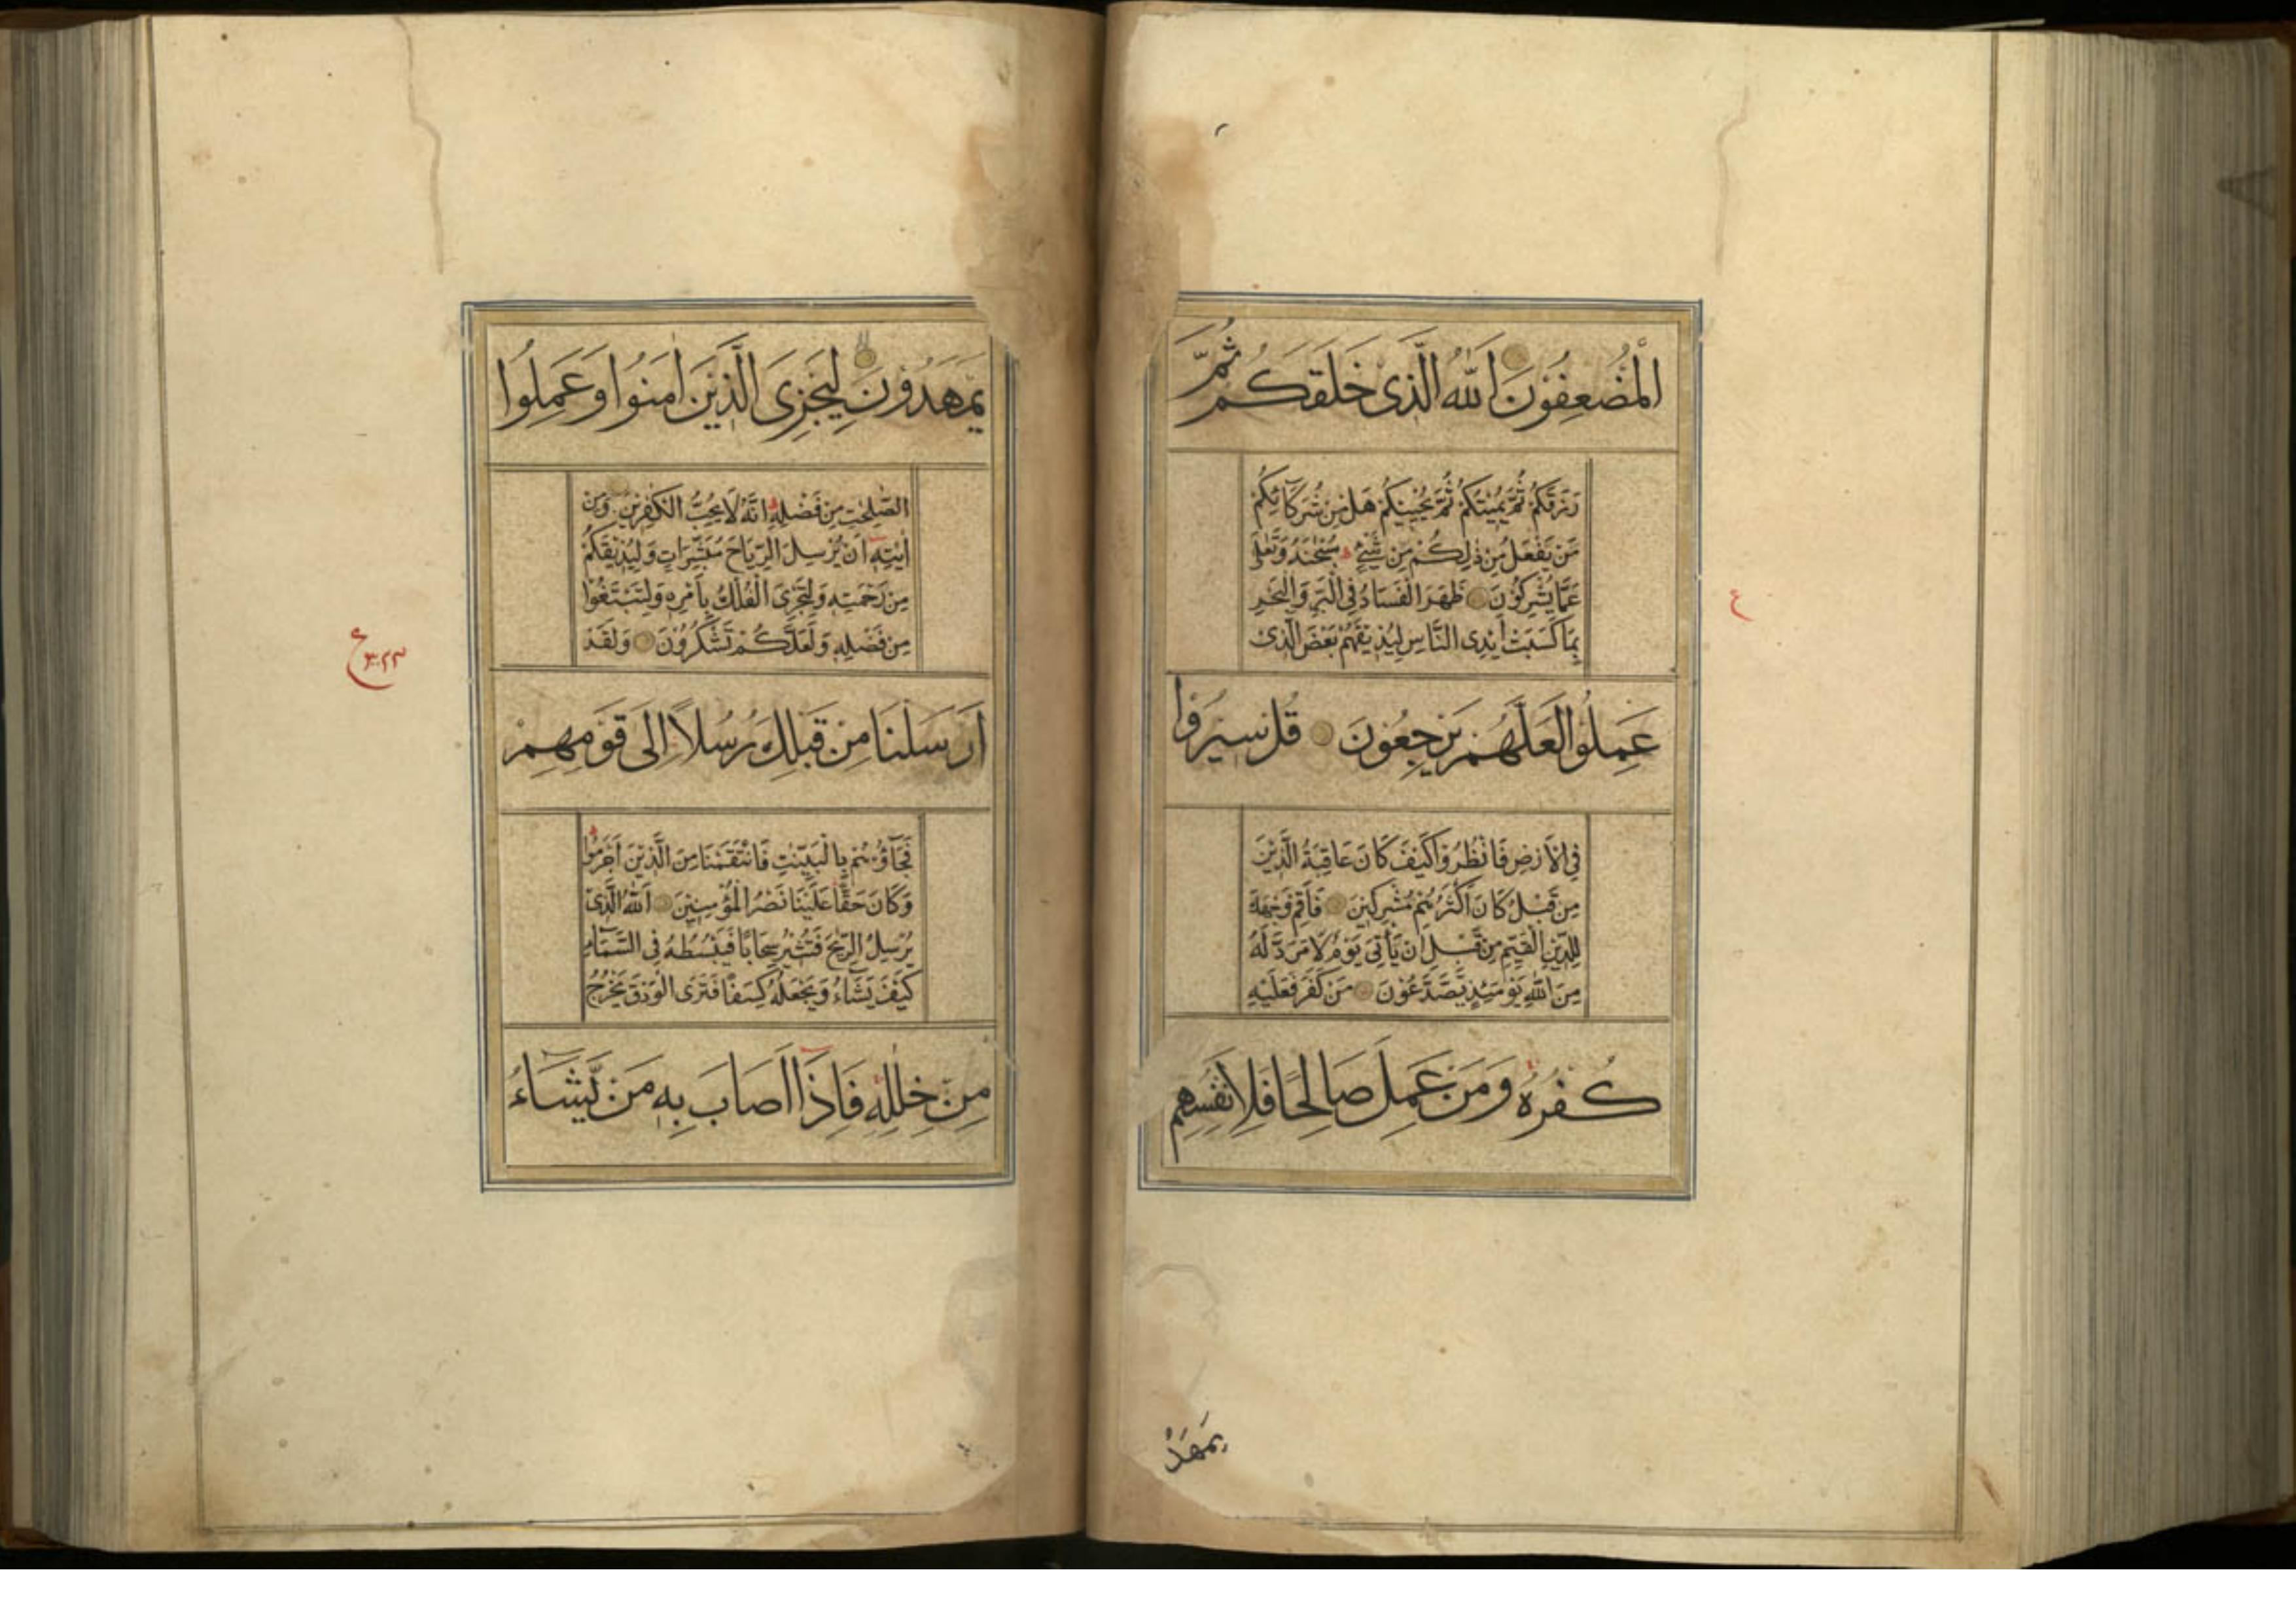 الْمُضْعِفُونَ اَللّٰهُ الَّذِى خَلَقَكُمْ ثُمَّ
رَزَقَكُمْ ثُمَّ يُمِيْتُكُمْ ثُمَّ يُحْيِيْكُمْ هَلْ مِنْ شُرَكَآئِكُمْ
مَنْ يَفْعَلُ مِنْ ذٰلِكُمْ مِنْ شَيْءٍ سُبْحٰنَهُ وَتَعٰلٰى
عَمَّا يُشْرِكُوْنَ ظَهَرَ الْفَسَادُ فِى الْبَرِّ وَالْبَحْرِ
بِمَا كَسَبَتْ اَيْدِى النَّاسِ لِيُذِيْقَهُمْ بَعْضَ الَّذِىْ
عَمِلُوْا لَعَلَّهُمْ يَرْجِعُوْنَ قُلْ سِيْرُوْا
فِى الْاَرْضِ فَانْظُرُوْا كَيْفَ كَانَ عَاقِبَةُ الَّذِيْنَ
مِنْ قَبْلُ كَانَ اَكْثَرُهُمْ مُشْرِكِيْنَ فَاَقِمْ وَجْهَكَ
لِلدِّيْنِ الْقَيِّمِ مِنْ قَبْلِ اَنْ يَأْتِىَ يَوْمٌ لَا مَرَدَّ لَهُ
مِنَ اللّٰهِ يَوْمَئِذٍ يَّصَّدَّعُوْنَ مَنْ كَفَرَ فَعَلَيْهِ
كُفْرُهُ وَمَنْ عَمِلَ صَالِحًا فَلِاَنْفُسِهِمْ
يَمْهَدْ
ع
يَمْهَدُوْنَ لِيَجْزِىَ الَّذِيْنَ اٰمَنُوْا وَعَمِلُوا
الصّٰلِحٰتِ مِنْ فَضْلِهٖ اِنَّهُ لَا يُحِبُّ الْكٰفِرِيْنَ وَمِنْ
اٰيٰتِهٖ اَنْ يُرْسِلَ الرِّيَاحَ مُبَشِّرَاتٍ وَلِيُذِيْقَكُمْ
مِنْ رَحْمَتِهٖ وَلِتَجْرِىَ الْفُلْكُ بِاَمْرِهٖ وَلِتَبْتَغُوْا
مِنْ فَضْلِهٖ وَلَعَلَّكُمْ تَشْكُرُوْنَ وَلَقَدْ
اَرْسَلْنَا مِنْ قَبْلِكَ رُسُلًا اِلٰى قَوْمِهِمْ
فَجَآؤُهُمْ بِالْبَيِّنٰتِ فَانْتَقَمْنَا مِنَ الَّذِيْنَ اَجْرَمُوْا
وَكَانَ حَقًّا عَلَيْنَا نَصْرُ الْمُؤْمِنِيْنَ اَللّٰهُ الَّذِىْ
يُرْسِلُ الرِّيٰحَ فَتُثِيْرُ سَحَابًا فَيَبْسُطُهُ فِى السَّمَآءِ
كَيْفَ يَشَآءُ وَيَجْعَلُهُ كِسَفًا فَتَرَى الْوَدْقَ يَخْرُجُ
مِنْ خِلٰلِهٖ فَاِذَا اَصَابَ بِهٖ مَنْ يَّشَآءُ